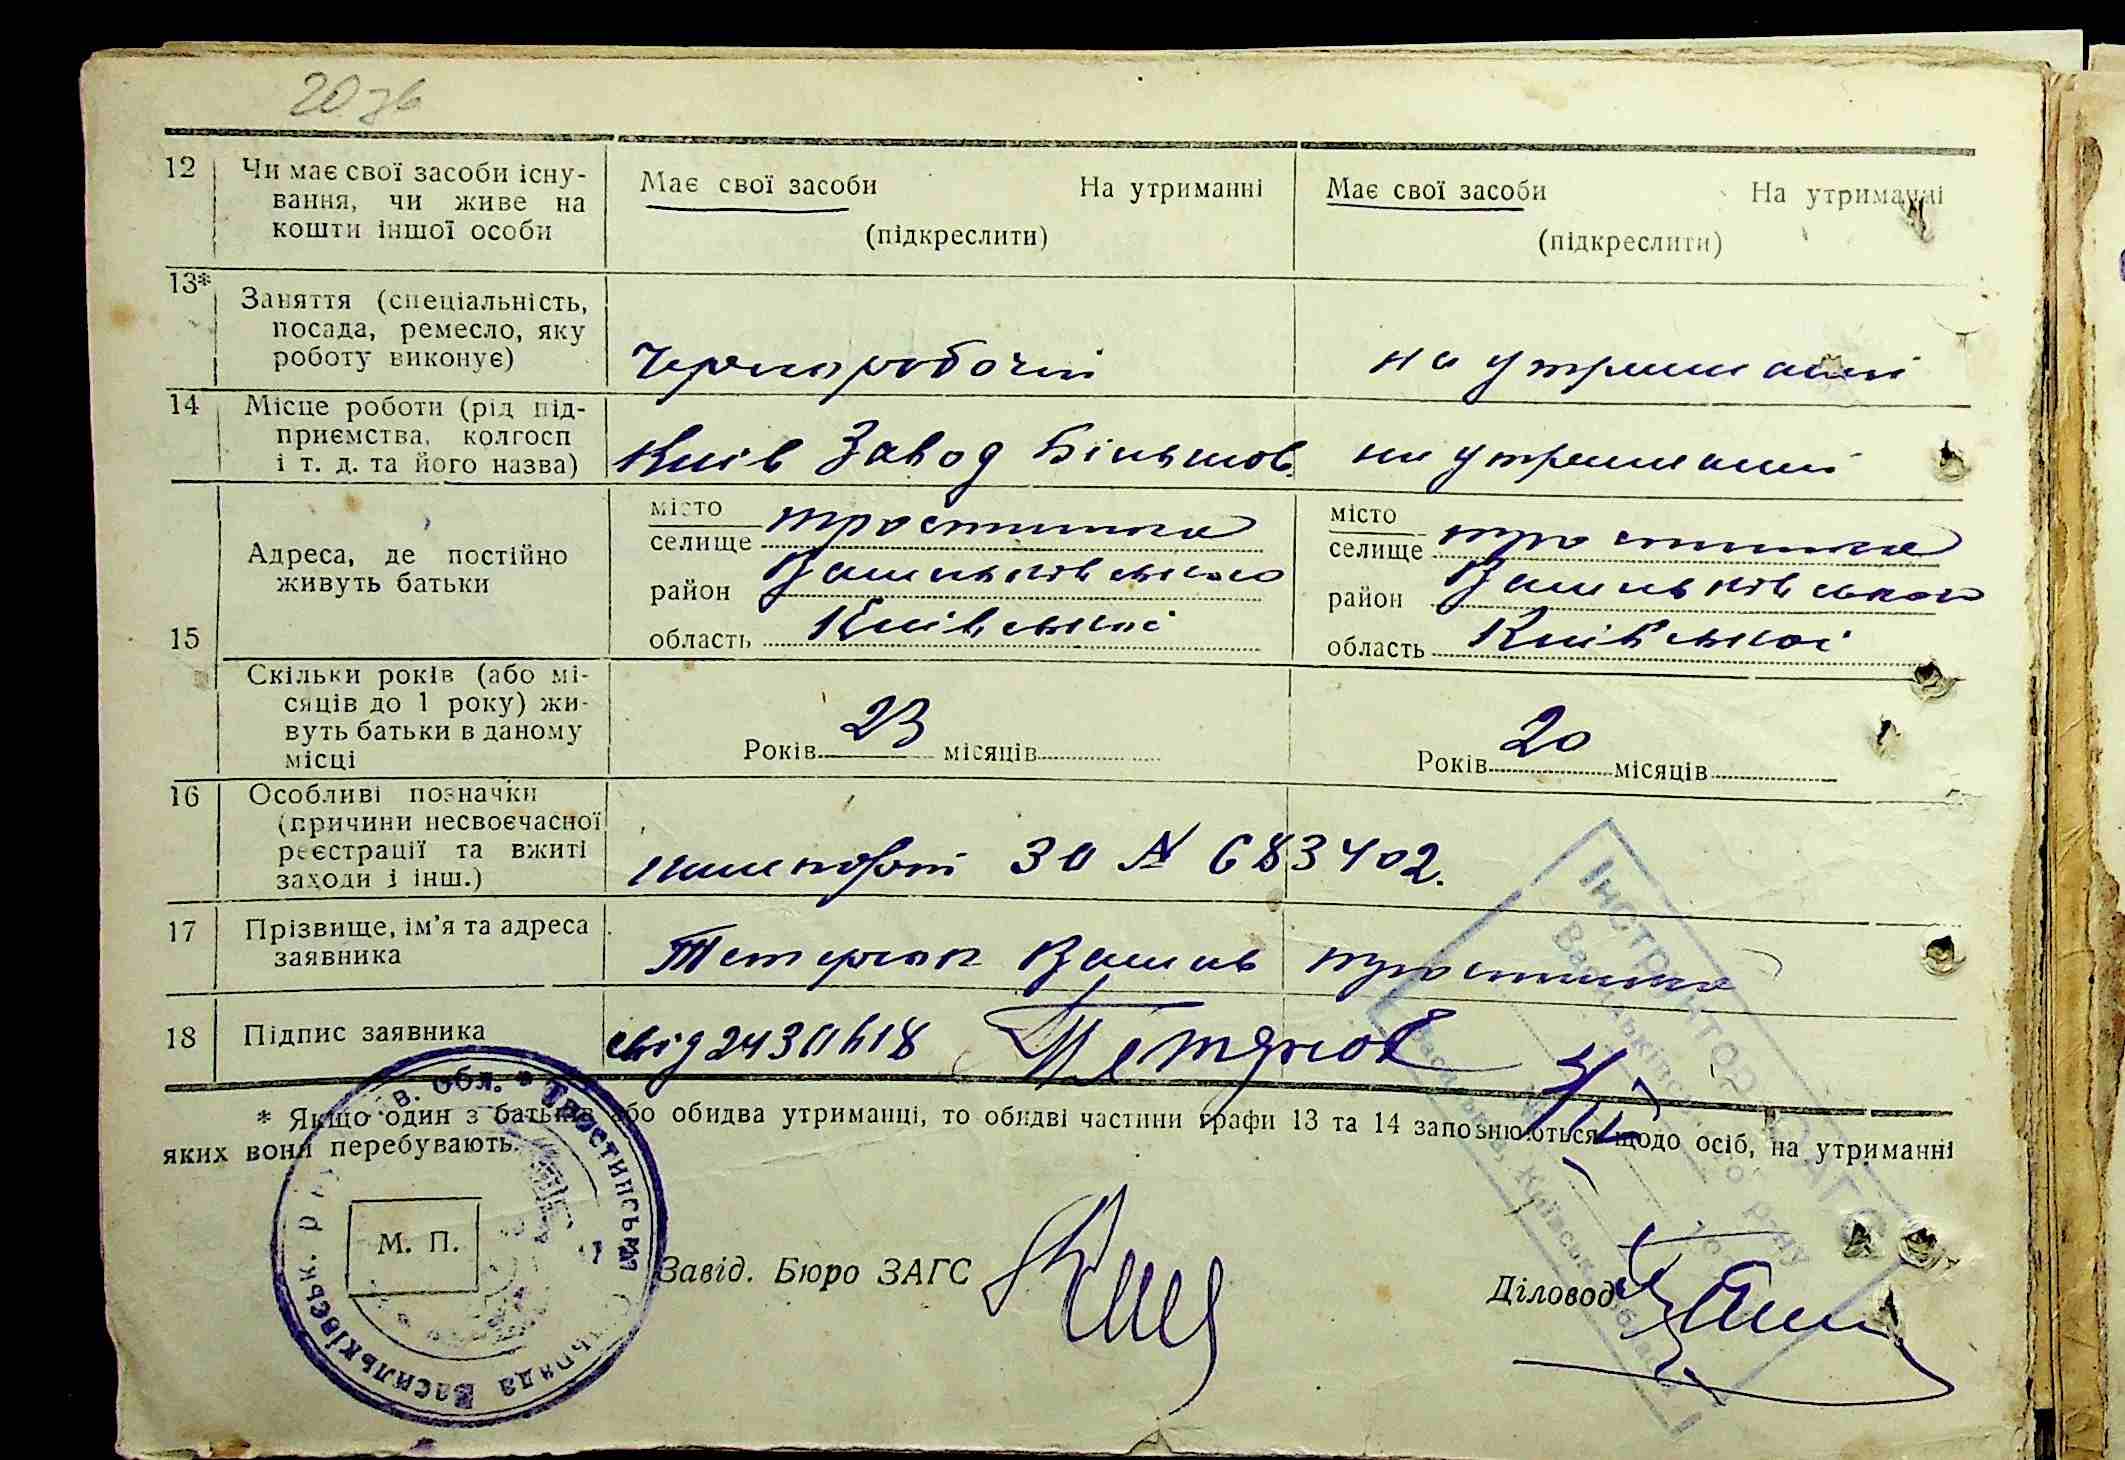 20 зв
12 Чи має свої засоби існу-
вання, чи живе на
кошти іншої особи
Має свої засоби На утриманні
(підкреслити)
Має свої засоби На утриманні
(підкреслити)
13* Заняття (спеціальність,
посада, ремесло, яку
роботу виконує)
Черноробочій
на утриманні
14 Місце роботи (рід під-
приємства, колгосп
і т. д. та його назва)
Київ Завод Більшов.
на утриманні
15 Адреса, де постійно
живуть батьки
місто
селище Тростинка
район Васильківського
область Київської
місто
селище Тростинка
район Васильківського
область Київської
Скільки років (або мі-
сяців до 1 року) жи-
вуть батьки в даному
місці
Років 23 місяців
Років 20 місяців
16 Особливі позначки
(причини несвоєчасної
реєстрації та вжиті
заходи і інш.)
паспорт ЗО № 683402.
17 Прізвище, ім'я та адреса
заявника
Василь Тростинка
18 Підпис заявника
* Якщо один з батьків або обидва утриманці, то обидві частини графи 13 та 14 заповнюються щодо осіб, на утриманні
яких вони перебувають.
М. П.
Завід. Бюро ЗАГС
Діловод
Тростинська Сільрада Васильківськ. р-ну обл.
Інструктор ЗАГС